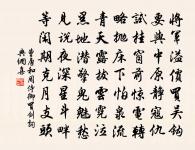 將軍溢價買吳鉤
要與中原靜寇仇
試挂窗前驚電轉
略拋床下怕泉流
青天露拔雲霓泣
黑地潛擎鬼魅愁
見說夜深星斗畔
等閑期克月支頭
曹唐和周侍御買劍詩
典網集